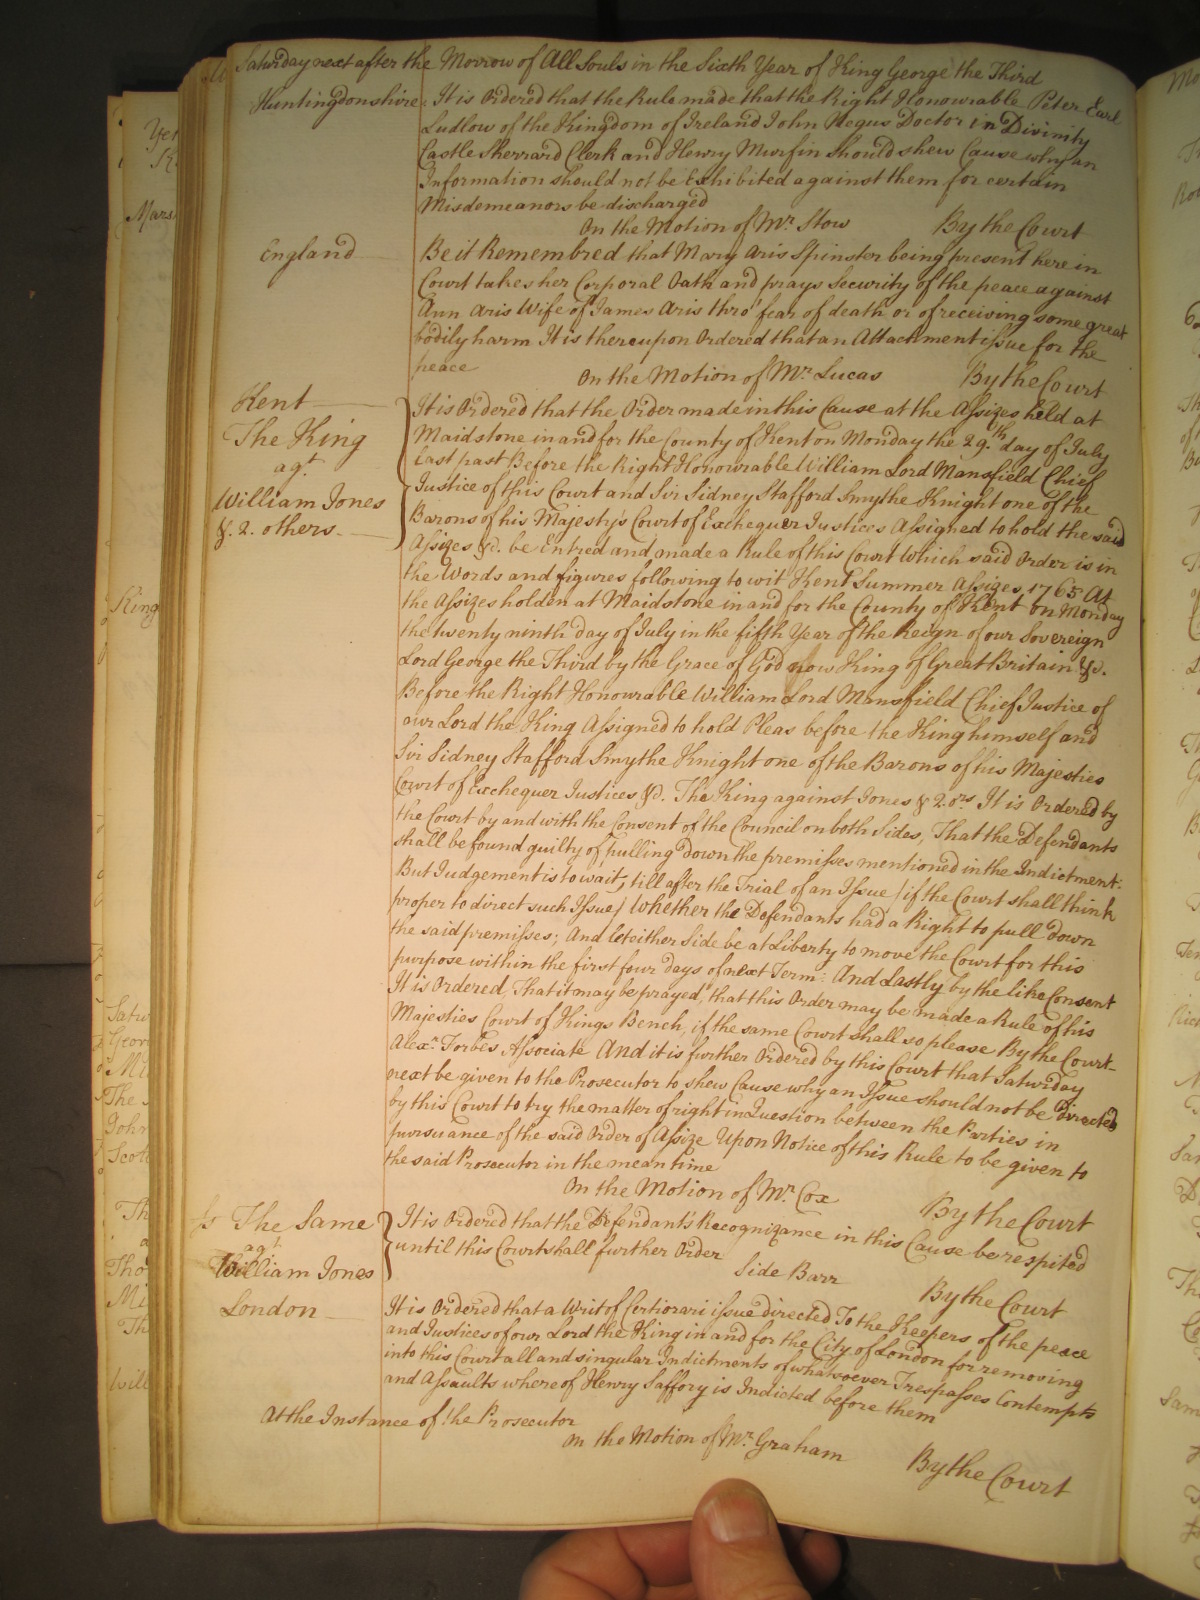 Saturday next after the Morrow of All Souls in the Sixth Year of King George the Third
Huntingdonshire It is Ordered that the Rule made that the Right Honourable Peter Earl
Ludlow of the Kingdom of Ireland John Negus Doctor in Divinity
Castle Sherrard Clerk and Henry Murfin should shew Cause why an
Information should not be Exhibited against them for certain
Misdemeanors be discharged
On the Motion of Mr. Stow By the Court
England Be it Remembred that Mary Aris Spinster being present here in
Court takes her Corporal Oath and prays Security of the peace against
Ann Aris Wife of James Aris thro' fear of death or of receiving some great
bodily harm It is thereupon Ordered that an Attachment issue for the
peace
On the Motion of Mr. Lucas By the Court
Kent It is Ordered that the Order made in this Cause at the Assizes held at
The King Maidstone in and for the County of Kent on Monday the 29th. day of July
agt. last past Before the Right Honourable William Lord Mansfield Chief
William Jones Justice of this Court and Sir Sidney Stafford Smythe Knight one of the
&. 2. others. Barons of his Majesty's Court of Exchequer Justices Assigned to hold the said
Assizes &c. be Entred and made a Rule of this Court which said Order is in
the Words and figures following to wit Kent Summer Assizes 1765 At
the Assizes holden at Maidstone in and for the County of Kent on Monday
the twenty ninth day of July in the fifth Year of the Reign of our Sovereign
Lord George the Third by the Grace of God now King of Great Britain &c.
Before the Right Honourable William Lord Mansfield Chief Justice of
our Lord the King Assigned to hold Pleas before the King himself and
Sir Sidney Stafford Smythe Knight one of the Barons of his Majesties
Court of Exchequer Justices &c. The King against Jones & 2. ors It is Ordered by
the Court by and with the Consent of the Council on both Sides, That the Defendants
shall be found guilty of pulling down the premisses mentioned in the Indictment:
But Judgement is to wait, till after the Trial of an Issue (if the Court shall think
proper to direct such Issue) Whether the Defendants had a Right to pull down
the said premisses; And let either Side be at Liberty to move the Court for this
purpose within the first four days of next Term: And Lastly by the like Consent
It is Ordered, That it may be prayed, that this Order may be made a Rule of his
Majesties Court of Kings Bench, if the same Court shall so please By the Court
Alexr. Forbes Associate And it is further Ordered by this Court that Saturday
next be given to the Prosecutor to shew Cause why an Issue should not be directed
by this Court to try the matter of right in Question between the Parties in
pursuance of the said Order of Assize Upon Notice of this Rule to be given to
the said Prosecutor in the mean time
On the Motion of Mr. Cox By the Court
The Same It is Ordered that the Defendant's Recognizance in this Cause be respited
agt. until this Court shall further Order
William Jones Side Barr By the Court
London It is Ordered that a Writ of Certiorari issue directed To the Keepers of the peace
and Justices of our Lord the King in and for the City of London for removing
into this Court all and singular Indictments of whatsoever Trespasses Contempts
and Assaults whereof Henry Saffory is Indicted before them
At the Instance of the Prosecutor
On the Motion of Mr. Graham By the Court